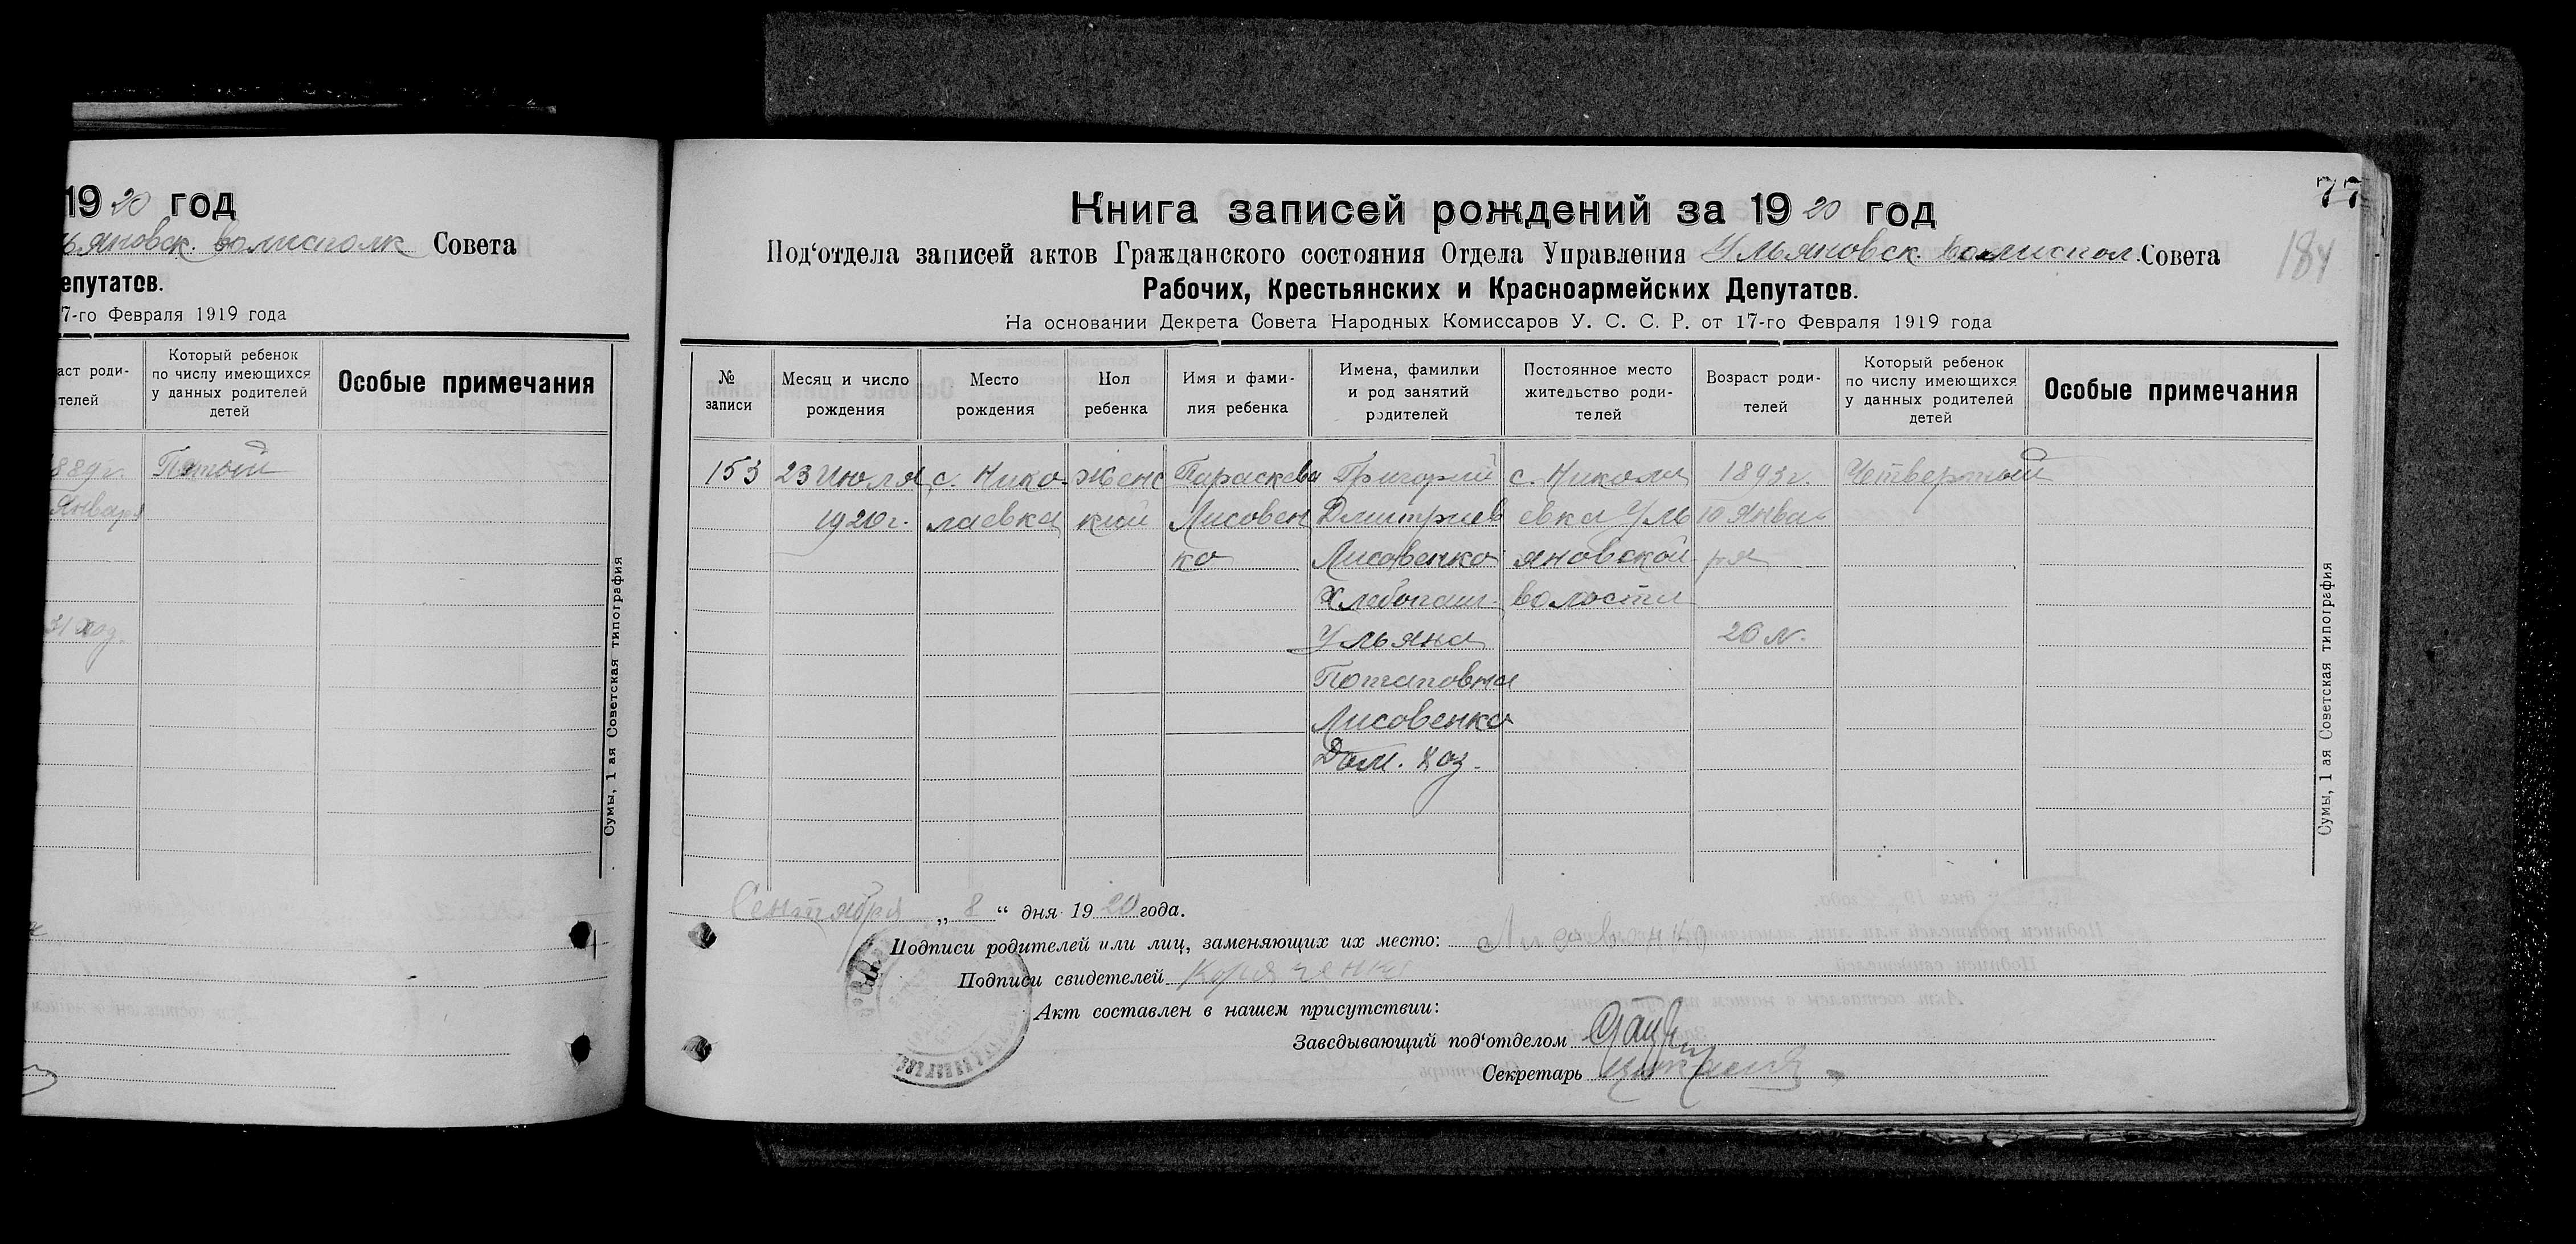 1920 год
ьяновск. волисполк Совета
епутатов.
7-го Февраля 1919 года
аст роди-
телей
Который ребенок
по числу имеющихся
у данных родителей
детей
Особые примечания
889 г.
Января
31 ход.
Пятый
Сумы, 1 ая Советская типография
77
184
Книга записей рождений за 1920 год
Под‘отдела записей актов Гражданского состояния Отдела Управления Ульяновск. Волиспол. Совета
Рабочих, Крестьянских и Красноармейских Депутатов.
На основании Декрета Совета Народных Комиссаров У. С. С. Р. от 17-го Февраля 1919 года
№
записи
Месяц и число
рождения
Место
рождения
Пол
ребенка
Имя и фами-
лия ребенка
Имена, фамилии
и род занятий
родителей
Постоянное место
жительство роди-
телей
Возраст роди-
телей
Который ребенок
по числу имеющихся
у данных родителей
детей
Особые примечания
153
23 Июля
1920 г.
с. Нико-
лаевка
Женс
кий
Параскева
Лисовен
ко
Григорий
Дмитриев
Лисовенко
Хлебопаш.
Ульяна
Потаповна
Лисовенко
Дом. Хоз.
с. Никола
евка Уль
яновской
волости
1893 г.
10 Янва-
ря
26 л.
Четвертый
Сумы, 1 ая Советская типография
Сентября „8“ дня 1920 года.
Подписи родителей или лиц, заменяющих их место: Лисовенко
Подписи свидетелей
Акт составлен в нашем присутствии:
Заведывающий под‘отделом
Секретарь